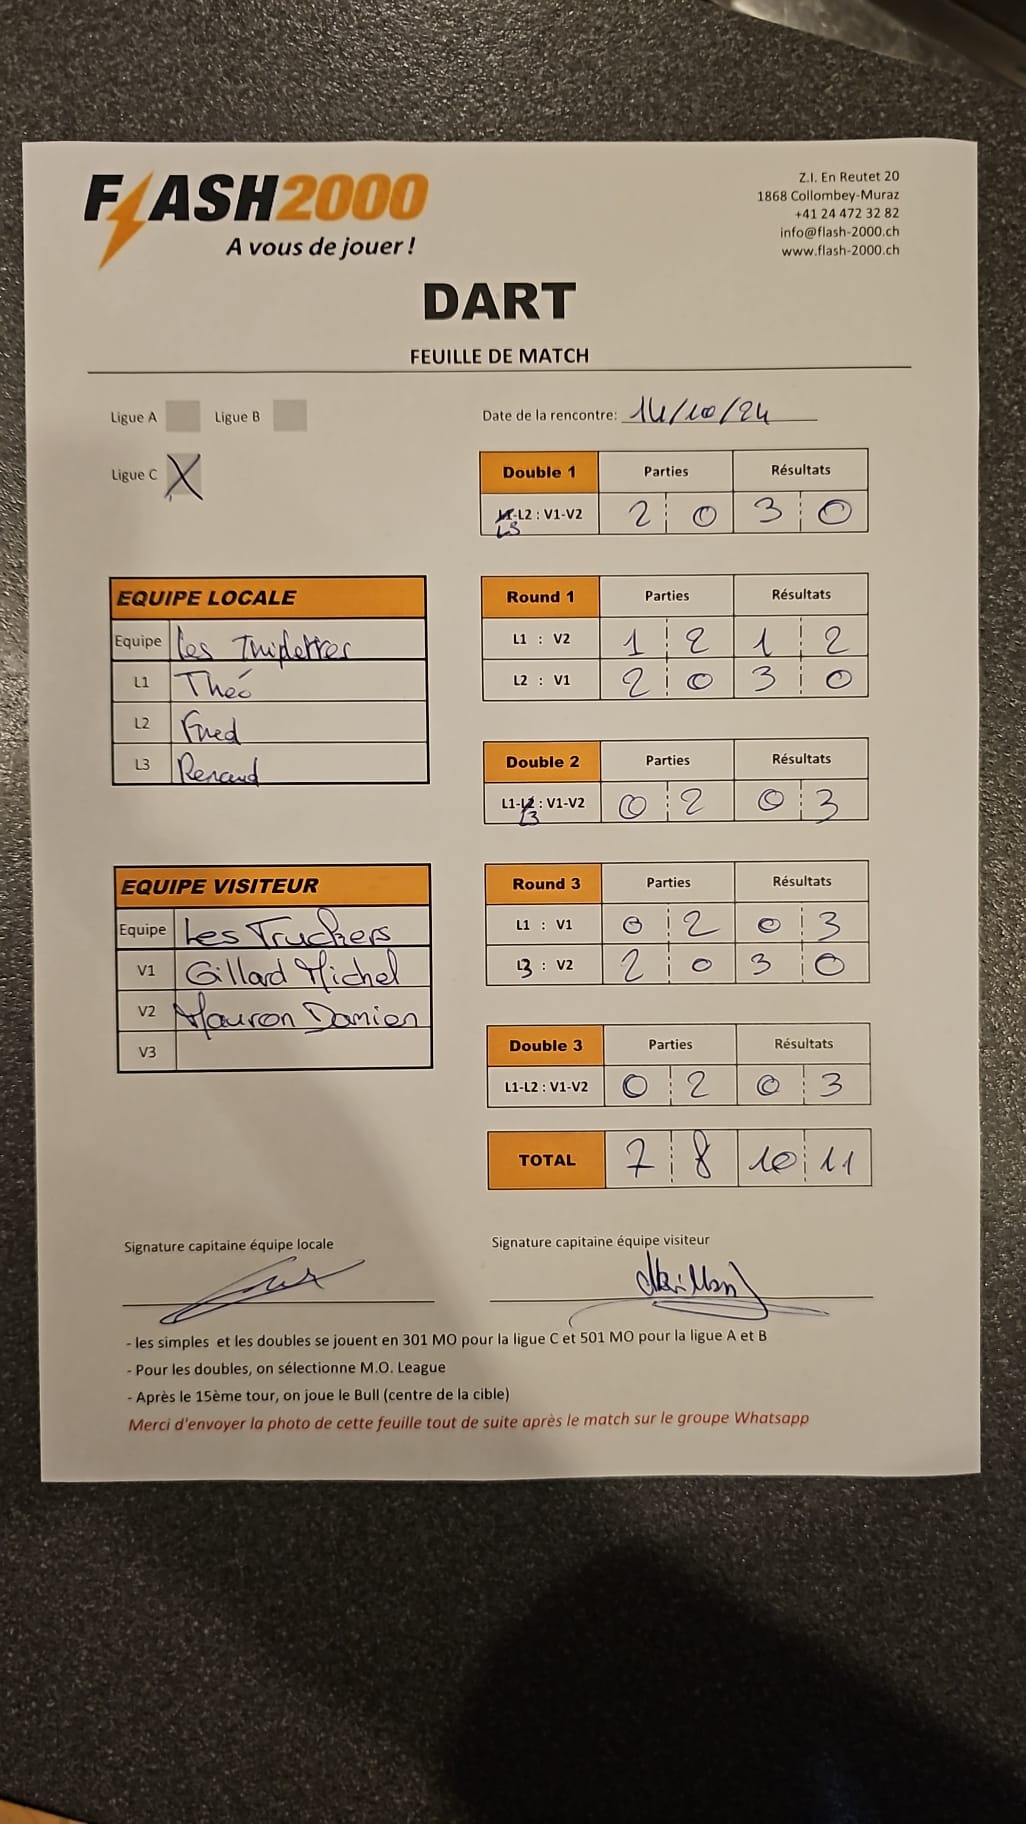 FLASH2000
A vous de jouer !
Z.I. En Reutet 20
1868 Collombey-Muraz
+41 24 472 32 82
info@flash-2000.ch
www.flash-2000.ch
DART
FEUILLE DE MATCH
Ligue A Ligue B
Ligue C X
Date de la rencontre: 14/10/24
Double 1 Parties Résultats
L3 -L2 : V1-V2 2 0 3 0
EQUIPE LOCALE
Equipe Les Triplettes
L1 Théo
L2 Fred
L3 Renaud
Round 1 Parties Résultats
L1 : V2 1 2 1 2
L2 : V1 2 0 3 0
Double 2 Parties Résultats
L1-L3 : V1-V2 0 2 0 3
EQUIPE VISITEUR
Equipe Les Truckers
V1 Gillard Michel
V2 Mauron Damien
V3
Round 3 Parties Résultats
L1 : V1 0 2 0 3
L3 : V2 2 0 3 0
Double 3 Parties Résultats
L1-L2 : V1-V2 0 2 0 3
TOTAL 7 8 10 11
Signature capitaine équipe locale
Signature capitaine équipe visiteur
- les simples et les doubles se jouent en 301 MO pour la ligue C et 501 MO pour la ligue A et B
- Pour les doubles, on sélectionne M.O. League
- Après le 15ème tour, on joue le Bull (centre de la cible)
Merci d'envoyer la photo de cette feuille tout de suite après le match sur le groupe Whatsapp